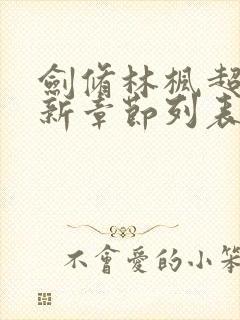 劍脩林楓超
新章節列表
不會愛的小笨